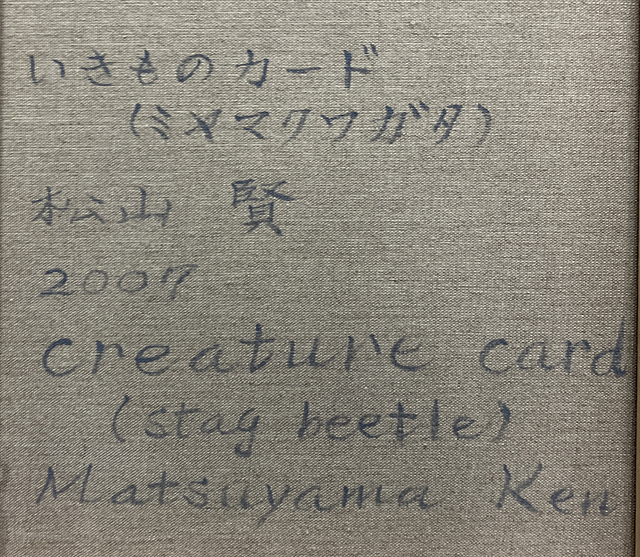 いきものカード
(ミヤマクワガタ)
松山 賢
2007
creature card
(stag beetle)
Matsuyama Ken